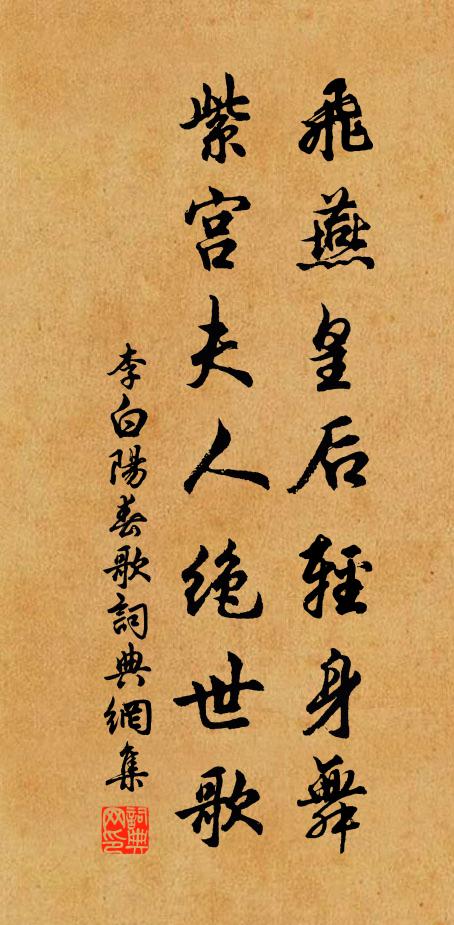 飛燕皇后輕身舞
紫宮夫人绝世歌
李白陽春歌詞典網集
詞典网印